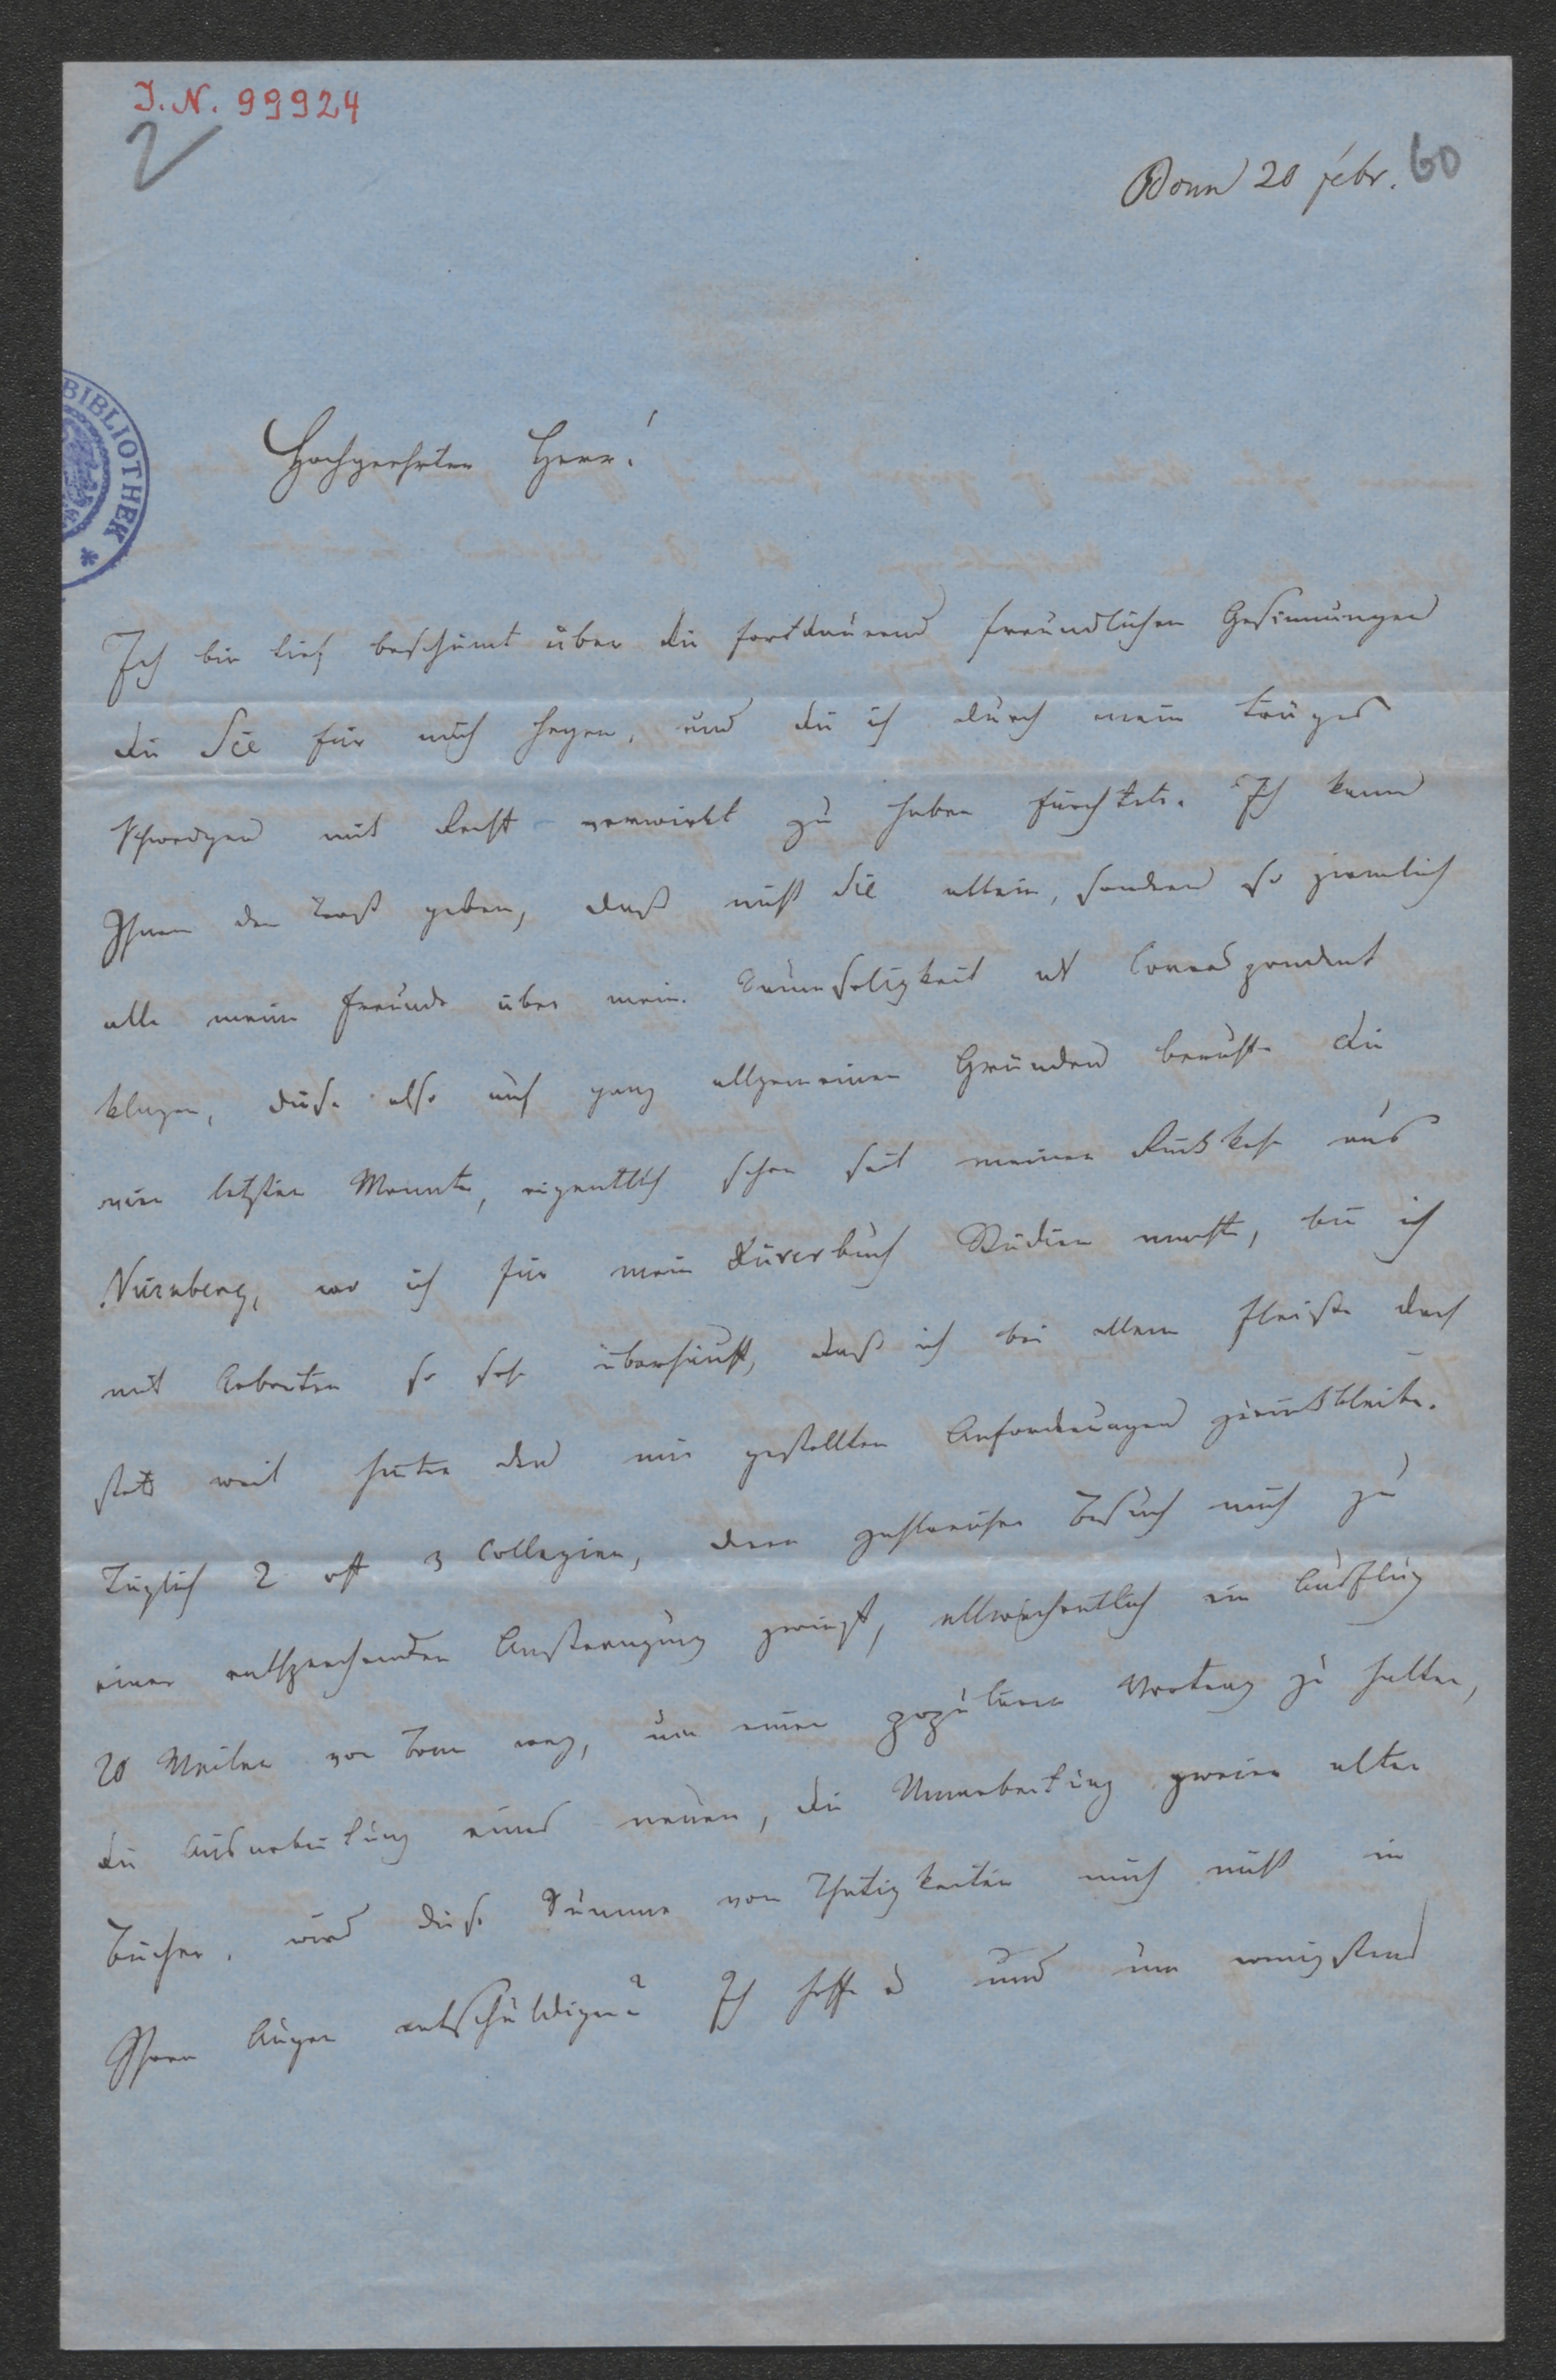 I.N. 99924
2
Bonn 20 febr. 60
BIBLIOTHEK *
Hochgeehrter Herr!
Ich bin tief beschämt über die fortdauernd freundlichen Gesinnungen
die Sie für mich hegen, und die ich durch mein träges
Schweigen mit Recht verwirkt zu haben fürchtete. Ich kann
Ihnen den Trost geben, daß nicht Sie allein, sondern so ziemlich
alle meine Freunde über meine Saumseligkeit als Correspondent
klagen, diese also auf ganz allgemeinen Gründen beruht. Die
vier letzten Monate, eigentlich schon seit meiner Rückkehr aus
Nürnberg, wo ich für mein Dürerbuch Studien machte, bin ich
mit Arbeiten so sehr überhäuft, daß ich bei allem Fleiße doch
stets weit hinter den mir gestellten Anforderungen zurückbleibe.
Täglich 2 oft 3 Collegien, deren zahlreicher Besuch mich zu
einer entsprechenden Anstrengung zwingt, allwöchentlich ein Ausflug
20 Meilen von Bonn weg, um einen populären Vortrag zu halten,
die Ausarbeitung eines neuen, die Umarbeitung zweier alter
Bücher, wird diese Summe von Thätigkeiten mich nicht in
Ihren Augen entschuldigen? Ich hoffe es und um wenigstens